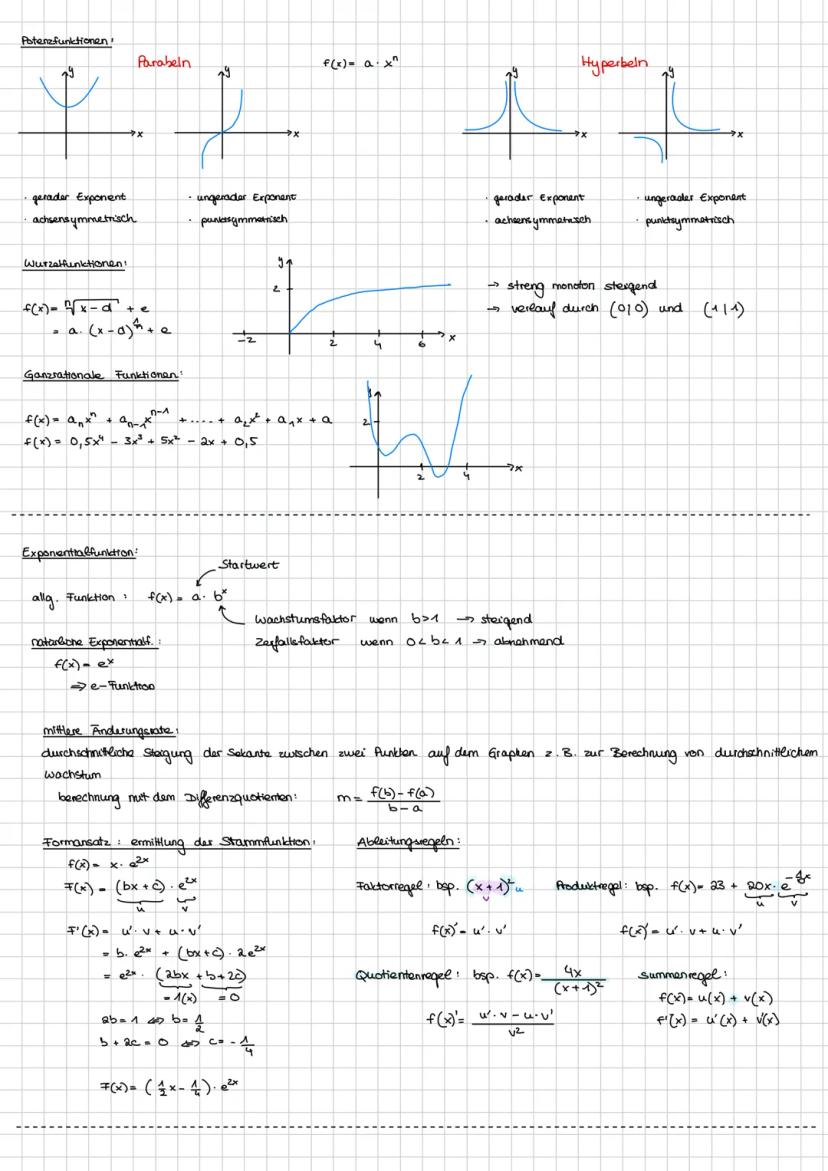 Potenzfunktionen:
Parabeln f(x) = a · xⁿ Hyperbeln
y y y y
x x x x
· gerader Exponent · ungerader Exponent · gerader Exponent · ungerader Exponent
· achsensymmetrisch · punktsymmetrisch · achsensymmetrisch · punktsymmetrisch
Wurzelfunktionen:
f(x) = ⁿ√(x-d) + e
= a · (x-d)^(1/n) + e
y
2
-2 2 4 6 x
→ streng monoton steigend
→ verlauf durch (0|0) und (1|1)
Ganzrationale Funktionen:
f(x) = aₙxⁿ + aₙ₋₁xⁿ⁻¹ + .... + a₂x² + a₁x + a
f(x) = 0,5x⁴ - 3x³ + 5x² - 2x + 0,5
2
2 4 x
Exponentialfunktion:
Startwert
allg. Funktion : f(x) = a · bˣ
Wachstumsfaktor wenn b>1 → steigend
Zerfallsfaktor wenn 0<b<1 → abnehmend
natürliche Exponentialf. :
f(x) = eˣ
⇒ e-Funktion
mittlere Änderungsrate:
durchschnittliche Steigung der Sekante zwischen zwei Punkten auf dem Graphen z.B. zur Berechnung von durchschnittlichem
Wachstum
berechnung mit dem Differenzquotienten: m = (f(b)-f(a))/(b-a)
Formansatz : ermittlung der Stammfunktion:
f(x) = x · e²ˣ
F(x) = (bx + c) · e²ˣ
u v
F'(x) = u' · v + u · v'
= b · e²ˣ + (bx+c) · 2e²ˣ
= e²ˣ · (2bx + b + 2c)
= 1(x) = 0
2b = 1 ⇔ b = 1/2
b + 2c = 0 ⇔ c = - 1/4
F(x) = (1/2 x - 1/4) · e²ˣ
Ableitungsregeln:
Faktorregel : bsp. (x+1)² u
v
f(x)' = u' · v'
Produktregel: bsp. f(x) = 23 + 20x · e
u v
f(x)' = u' · v + u · v'
Quotientenregel : bsp. f(x) = 4x/(x+1)²
f(x)' = (u' · v - u · v')/v²
Summenregel :
f(x) = u(x) + v(x)
f'(x) = u'(x) + v'(x)